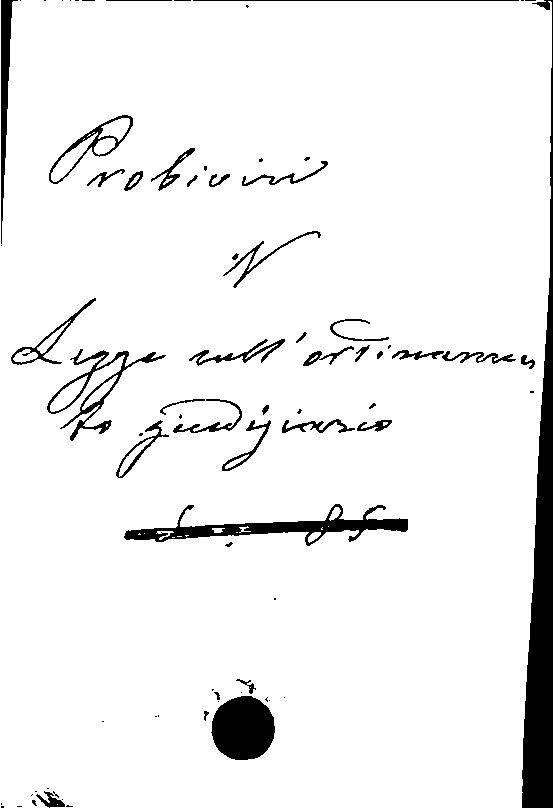 Probiviri
V
Legge sull'ordinamen
to giudiziario